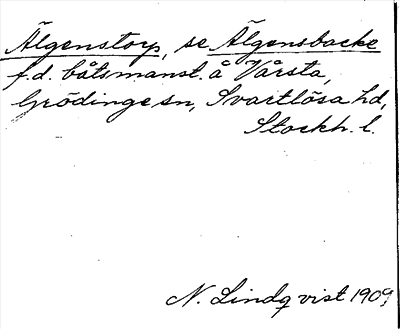 Älgenstorp, se Älgensbacke
f.d. båtsmanst. å Vårsta,
Grödinge sn, Svartlösa hd,
Stockh. l.
N. Lindqvist 1909